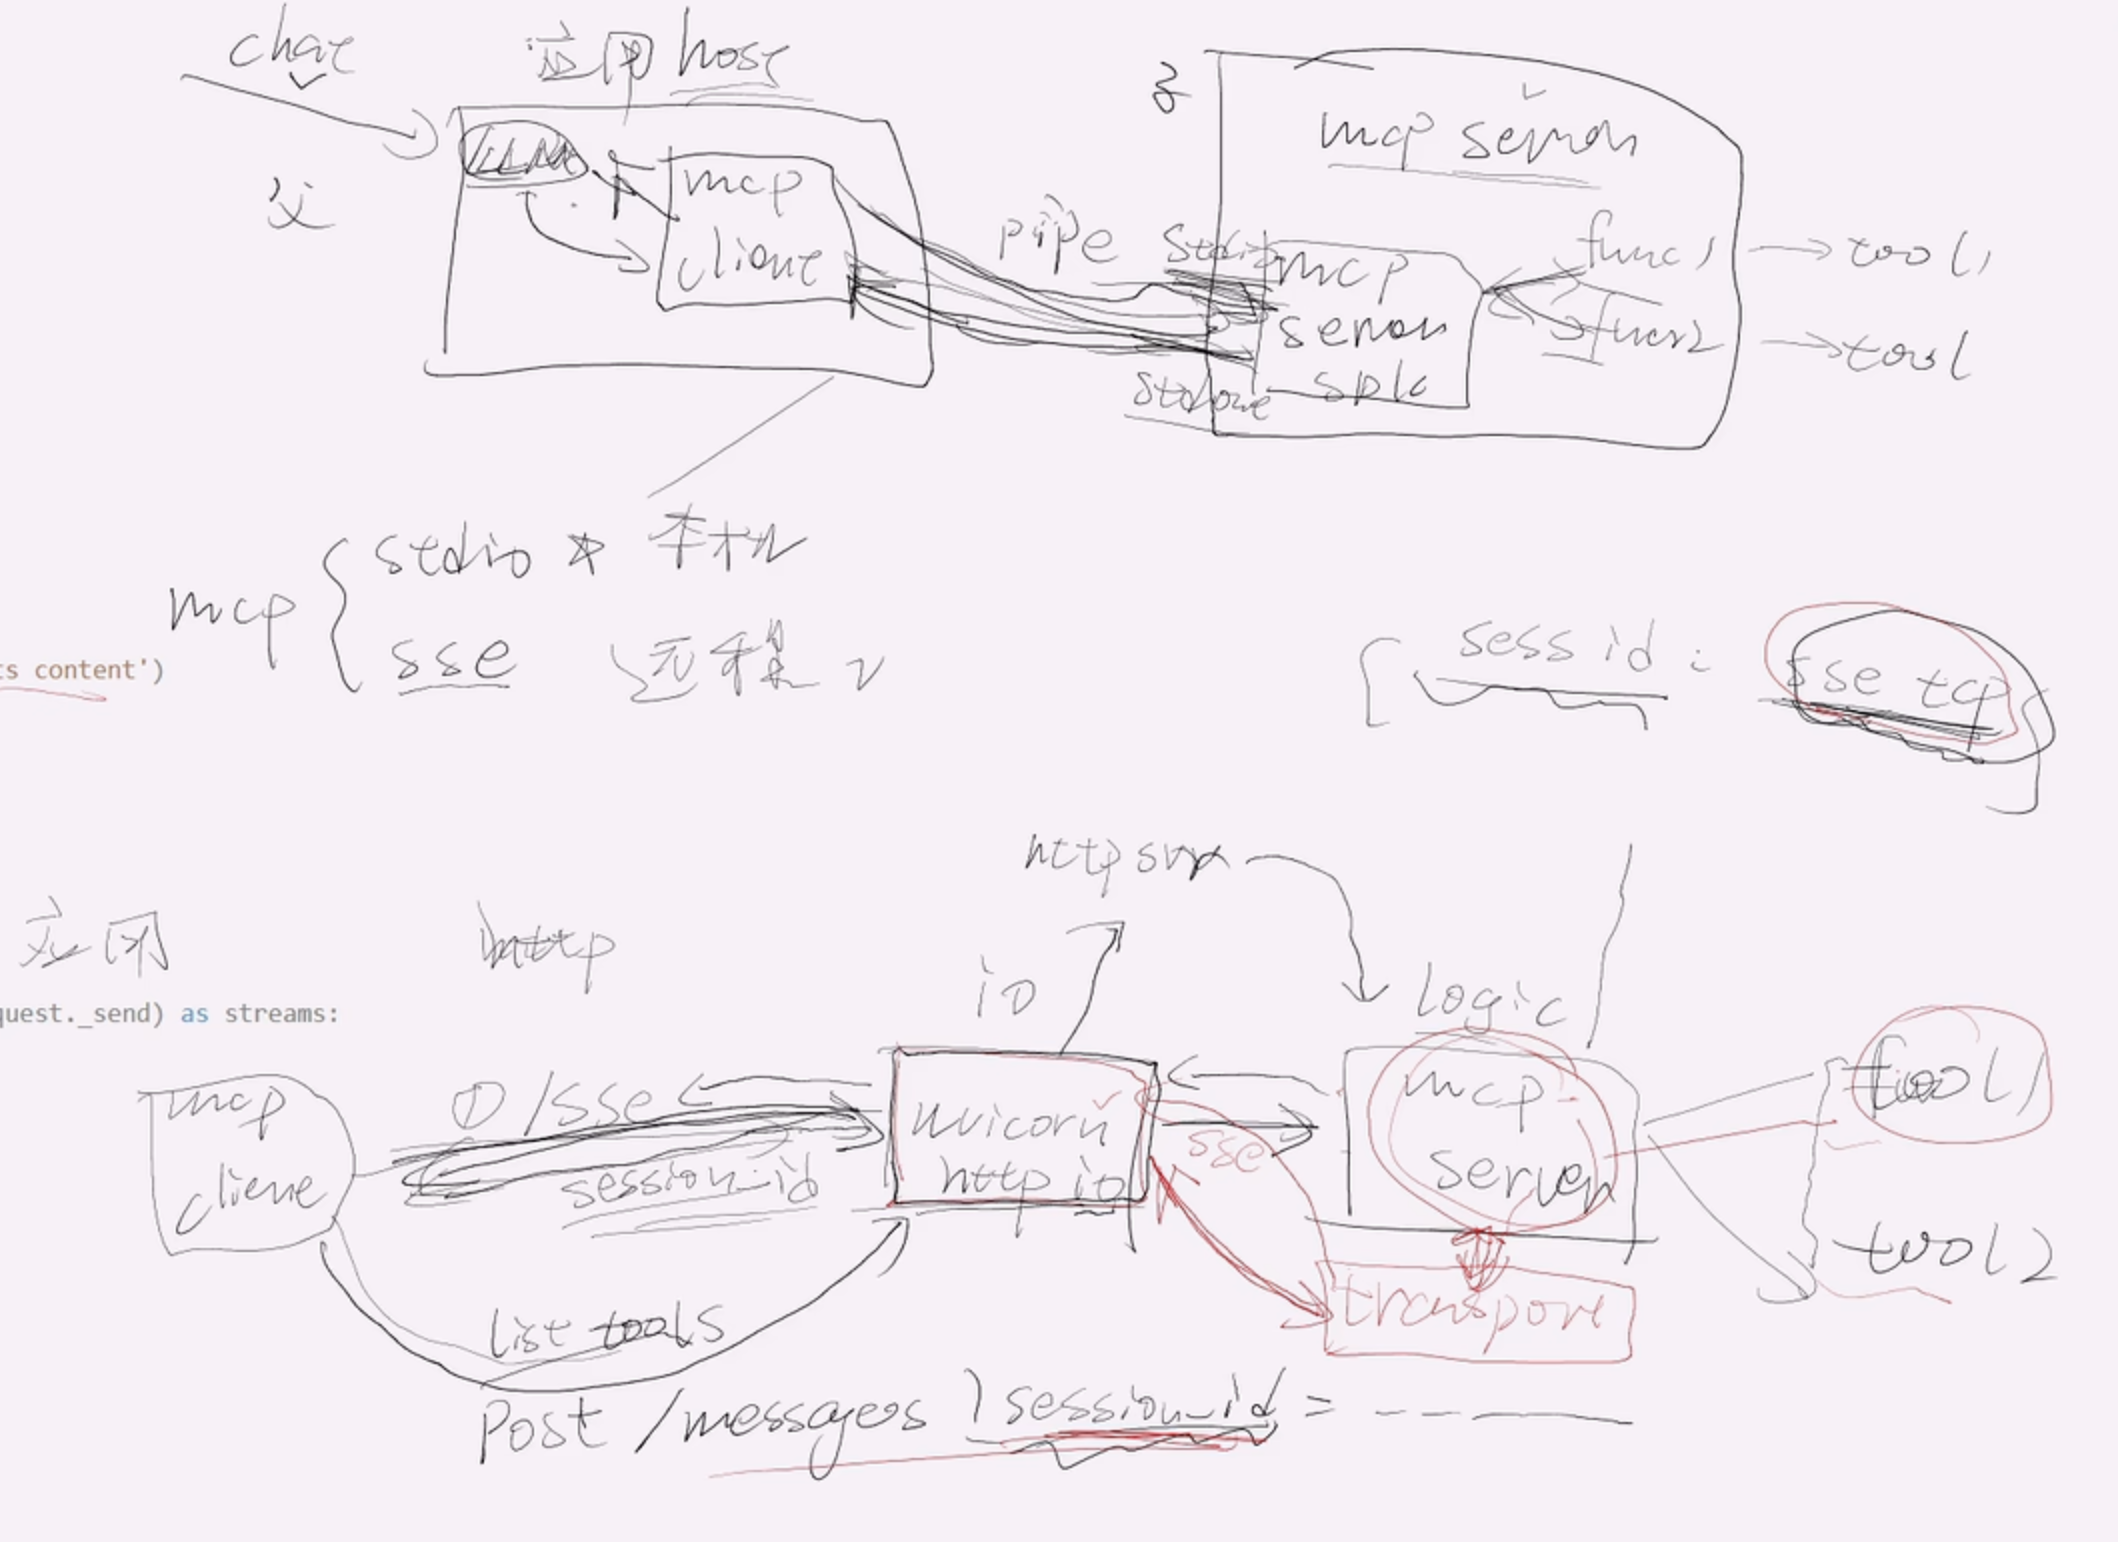 chat
应用 host
父
LLM
mcp
client
pipe
stdin
stdout
子
mcp server
mcp
server
sdk
func1 → tool1
func2 → tool
mcp { stdio * 本机
sse 远程
ts content')
[ sess id : sse tcp ]
http svr
应用
http
io
logic
quest._send) as streams:
mcp
client
① /sse
session_id
uvicorn
http io
sse
mcp
server
tool1
tool2
transport
list tools
Post /messages ? session_id = - - —